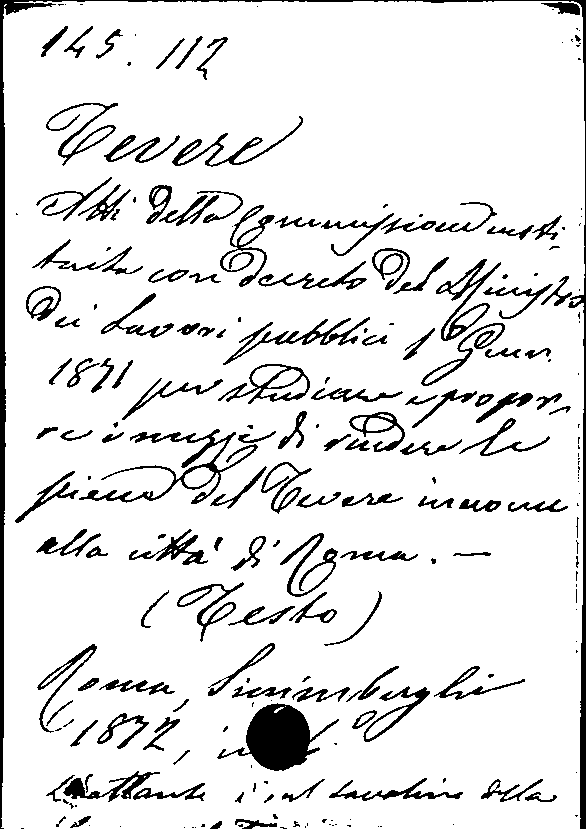 145. 112
Tevere
Atti della Commissione insti-
tuita con decreto del Ministro
dei Lavori pubblici 1 Genn.
1871 per studiare e propor-
re i mezzi di rendere le
piene del Tevere innocue
alla città di Roma. —
(Testo)
Roma, Sinimberghi
1872, in
L'atlante è sul tavolino della